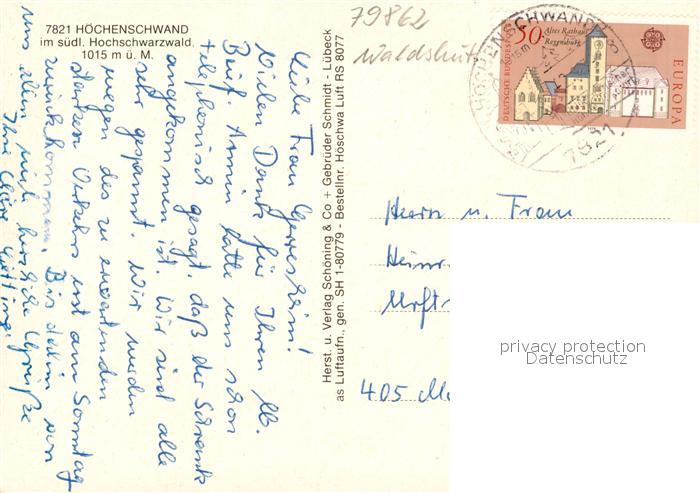 7821 HÖCHENSCHWAND
im südl. Hochschwarzwald.
1015 m ü. M.
Liebe Frau Gerresheim!
Vielen Dank für Ihren lb.
Brief. Armin hatte uns schon
telephonisch gesagt, daß der Schrank
angekommen ist. Wir sind alle
sehr gespannt. Wir werden
wegen des zu erwartenden
starken Verkehrs erst am Sonntag
zurückkommen. Bis dahin von
uns allen recht herzliche Grüße
Ihre
Herst. u. Verlag Schöning & Co + Gebrüder Schmidt - Lübeck
as Luftaufn., gen. SH 1-80779 - Bestellnr. Höschwa Luft RS 8077
79862
Waldshut
DEUTSCHE BUNDESPOST
50
Altes Rathaus
Regensburg
EUROPA
HÖCHENSCHWAND
7821
Herrn u. Frau
405
privacy protection
Datenschutz